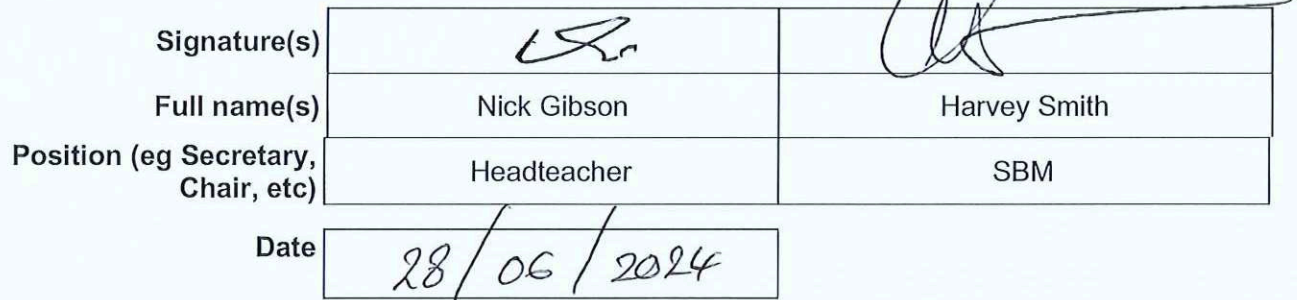 Signature(s)
Full name(s) Nick Gibson Harvey Smith
Position (eg Secretary, Chair, etc) Headteacher SBM
Date 28/06/2024